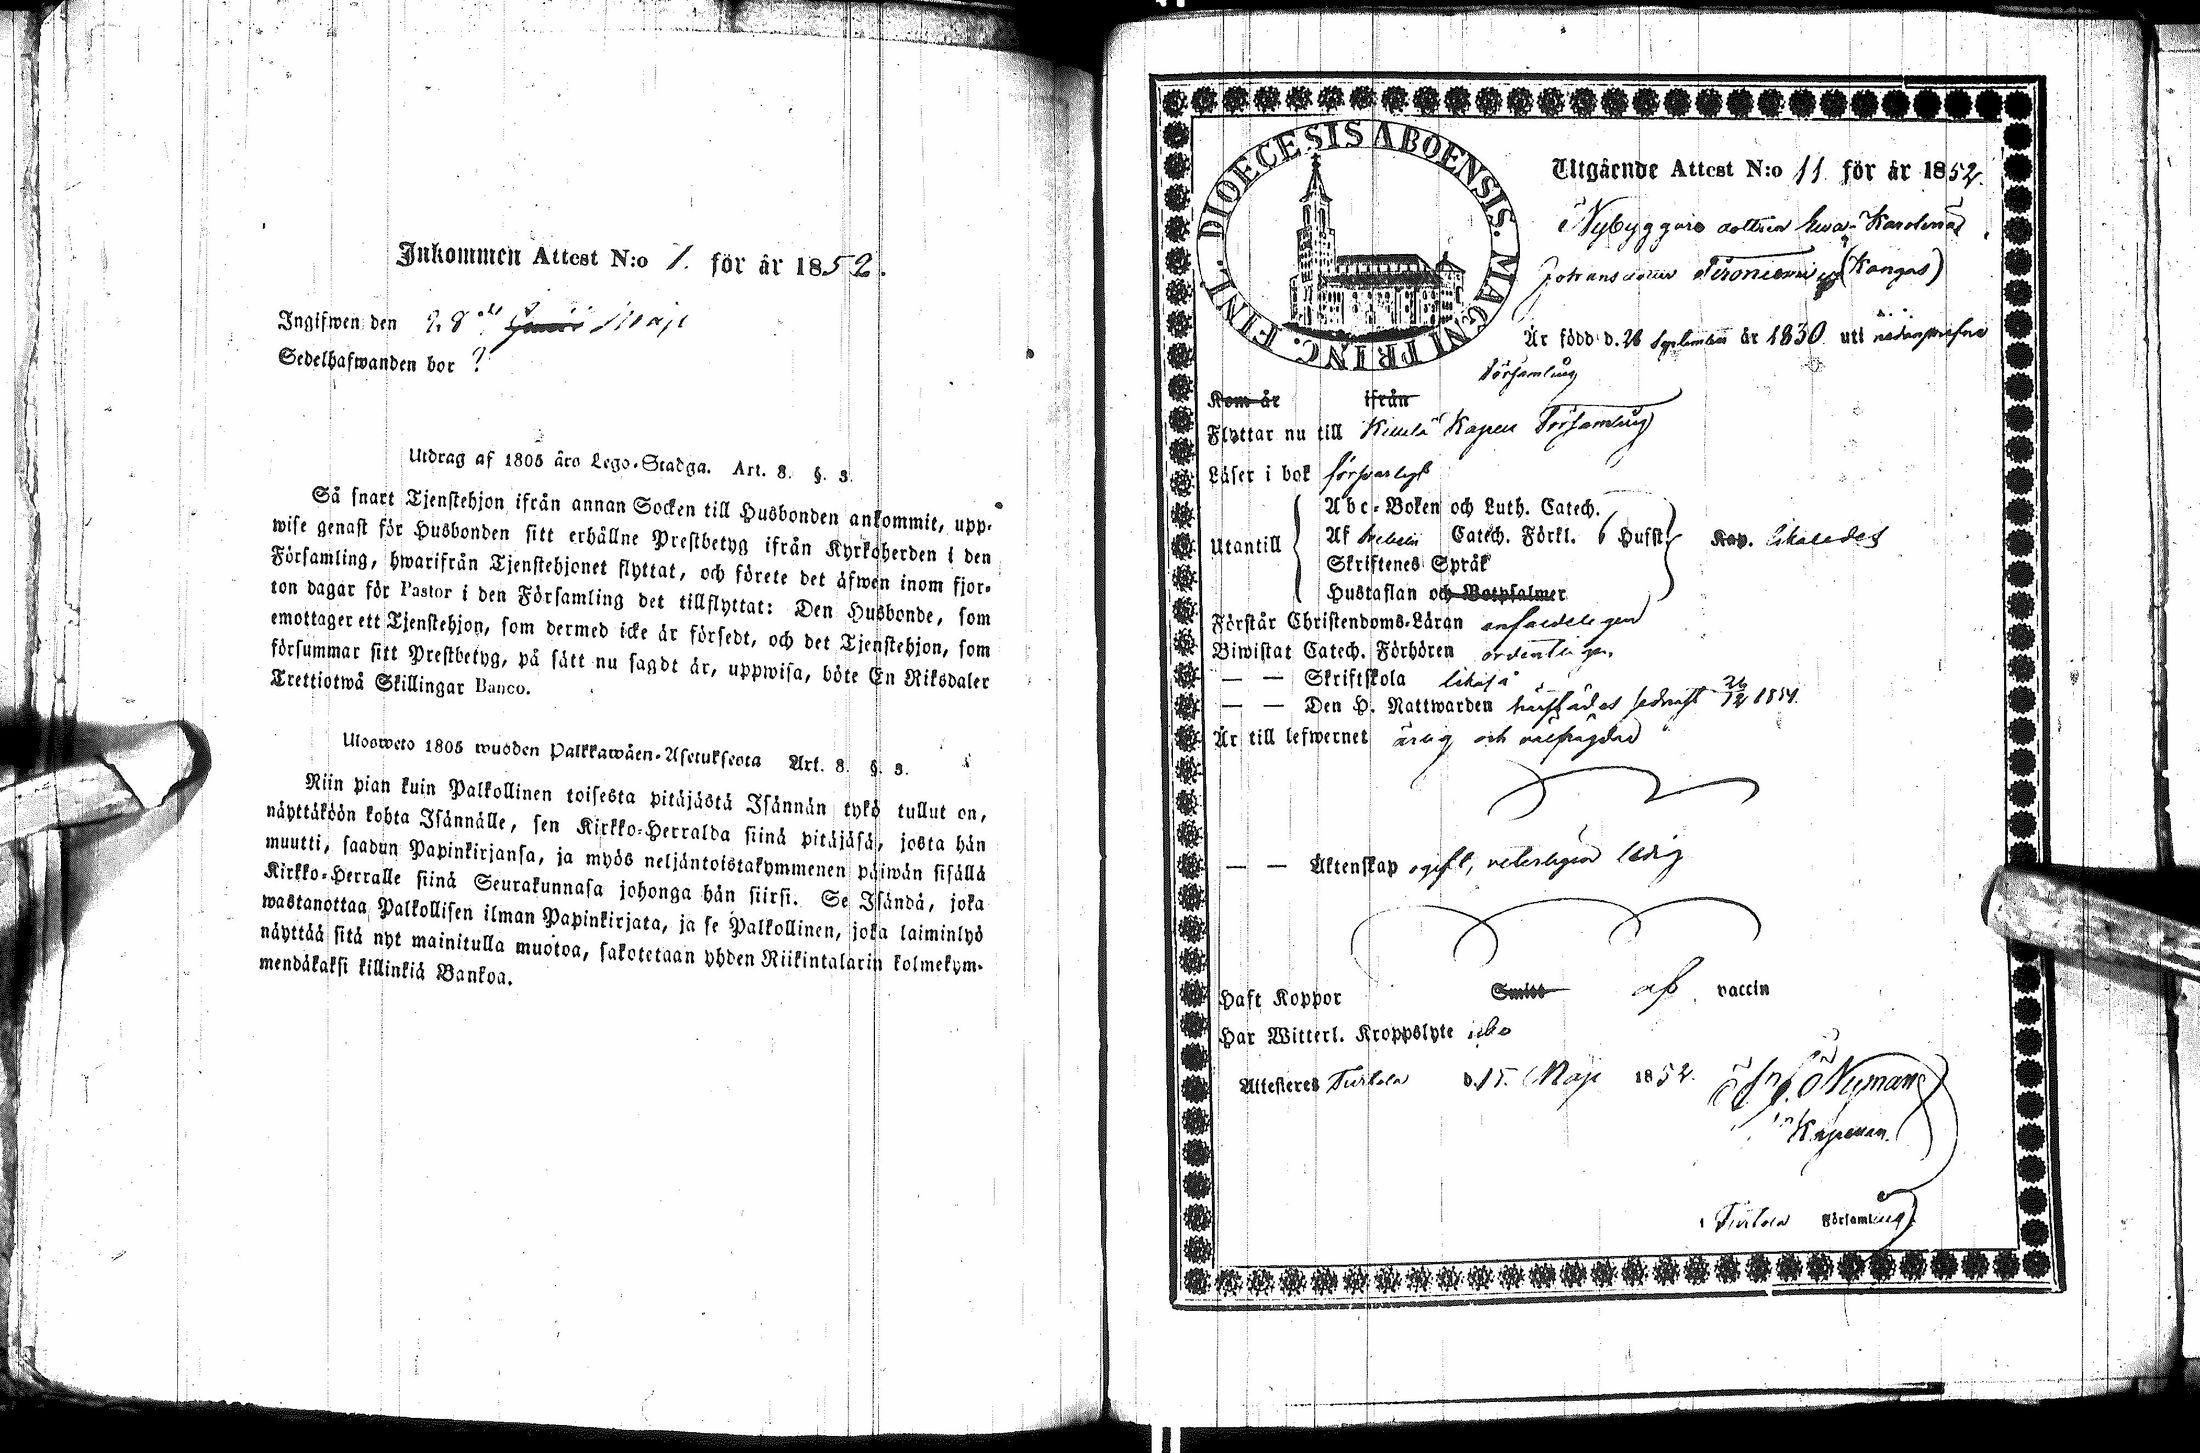 Inkommen Attest N:o 1. för år 1852.
Ingifwen den 28 Maji
Sedelhafwanden bor ?
Utdrag af 1805 års Lego-Stadga. Art. 8. §. 3.
Så snart Tjenstehjon ifrån annan Socken till Husbonden ankommit, upp-
wise genast för Husbonden sitt erhållne Prestbetyg ifrån Kyrkoherden i den
Församling, hwarifrån Tjenstehjonet flyttat, och förete det äfwen inom fjor-
ton dagar för Pastor i den Församling det tillflyttat: Den Husbonde, som
emottager ett Tjenstehjon, som dermed icke är försedt, och det Tjenstehjon, som
försummar sitt Prestbetyg, på sätt nu sagdt är, uppwisa, böte En Riksdaler
Trettiotwå Skillingar Banco.
Ulosweto 1805 wuoden Palkkawäen-Asetuksesta Art. 8. §. 3.
Niin pian kuin Palkollinen toisesta pitäjästä Isännän tykö tullut on,
näyttäköön kohta Isännälle, sen Kirkko-Herralda siinä pitäjäsä, josta hän
muutti, saadun Papinkirjansa, ja myös neljäntoistakymmenen päiwän sisällä
Kirkko-Herralle siinä Seurakunnasa johonga hän siirsi. Se Isändä, joka
wastanottaa Palkollisen ilman Papinkirjata, ja se Palkollinen, joka laiminlyö
näyttää sitä nyt mainitulla muotoa, sakotetaan yhden Riikintalarin kolmekym-
mendäkaksi killinkiä Bankoa.
DIOECESIS ABOENSIS. MAGNI PRINC. FINL.
Utgående Attest N:o 11 för år 1852.
Nybyggare dottren Ewa Karolina
Johansdotter (Kangas)
Är född d. 28 September år 1830 uti nedanskrefne
församling
Kom år ifrån
Flyttar nu till Kapell Församling
Läser i bok försvarligt
Abc-Boken och Luth. Catech.
Utantill Af Catech. Förkl. 6 Hufst. Kap. likaledes
Skriftenes Språk
Hustaflan och Botpsalmer
Förstår Christendoms-Läran enfaldeligen
Biwistat Catech. Förhören ordenteligen
— — Skriftskola likaså
— — Den H. Nattwarden sednast 26/12 1851.
Är till lefwernet ärlig och välfrägdad
— — Äktenskap ogift, veterligen ledig
Haft Koppor Smitt af vaccin
Har Witterl. Kroppslyte icke
Attesteres Turtola d. 15. Maji 1852. Nyman
Kapellan.
i Turtola Församling